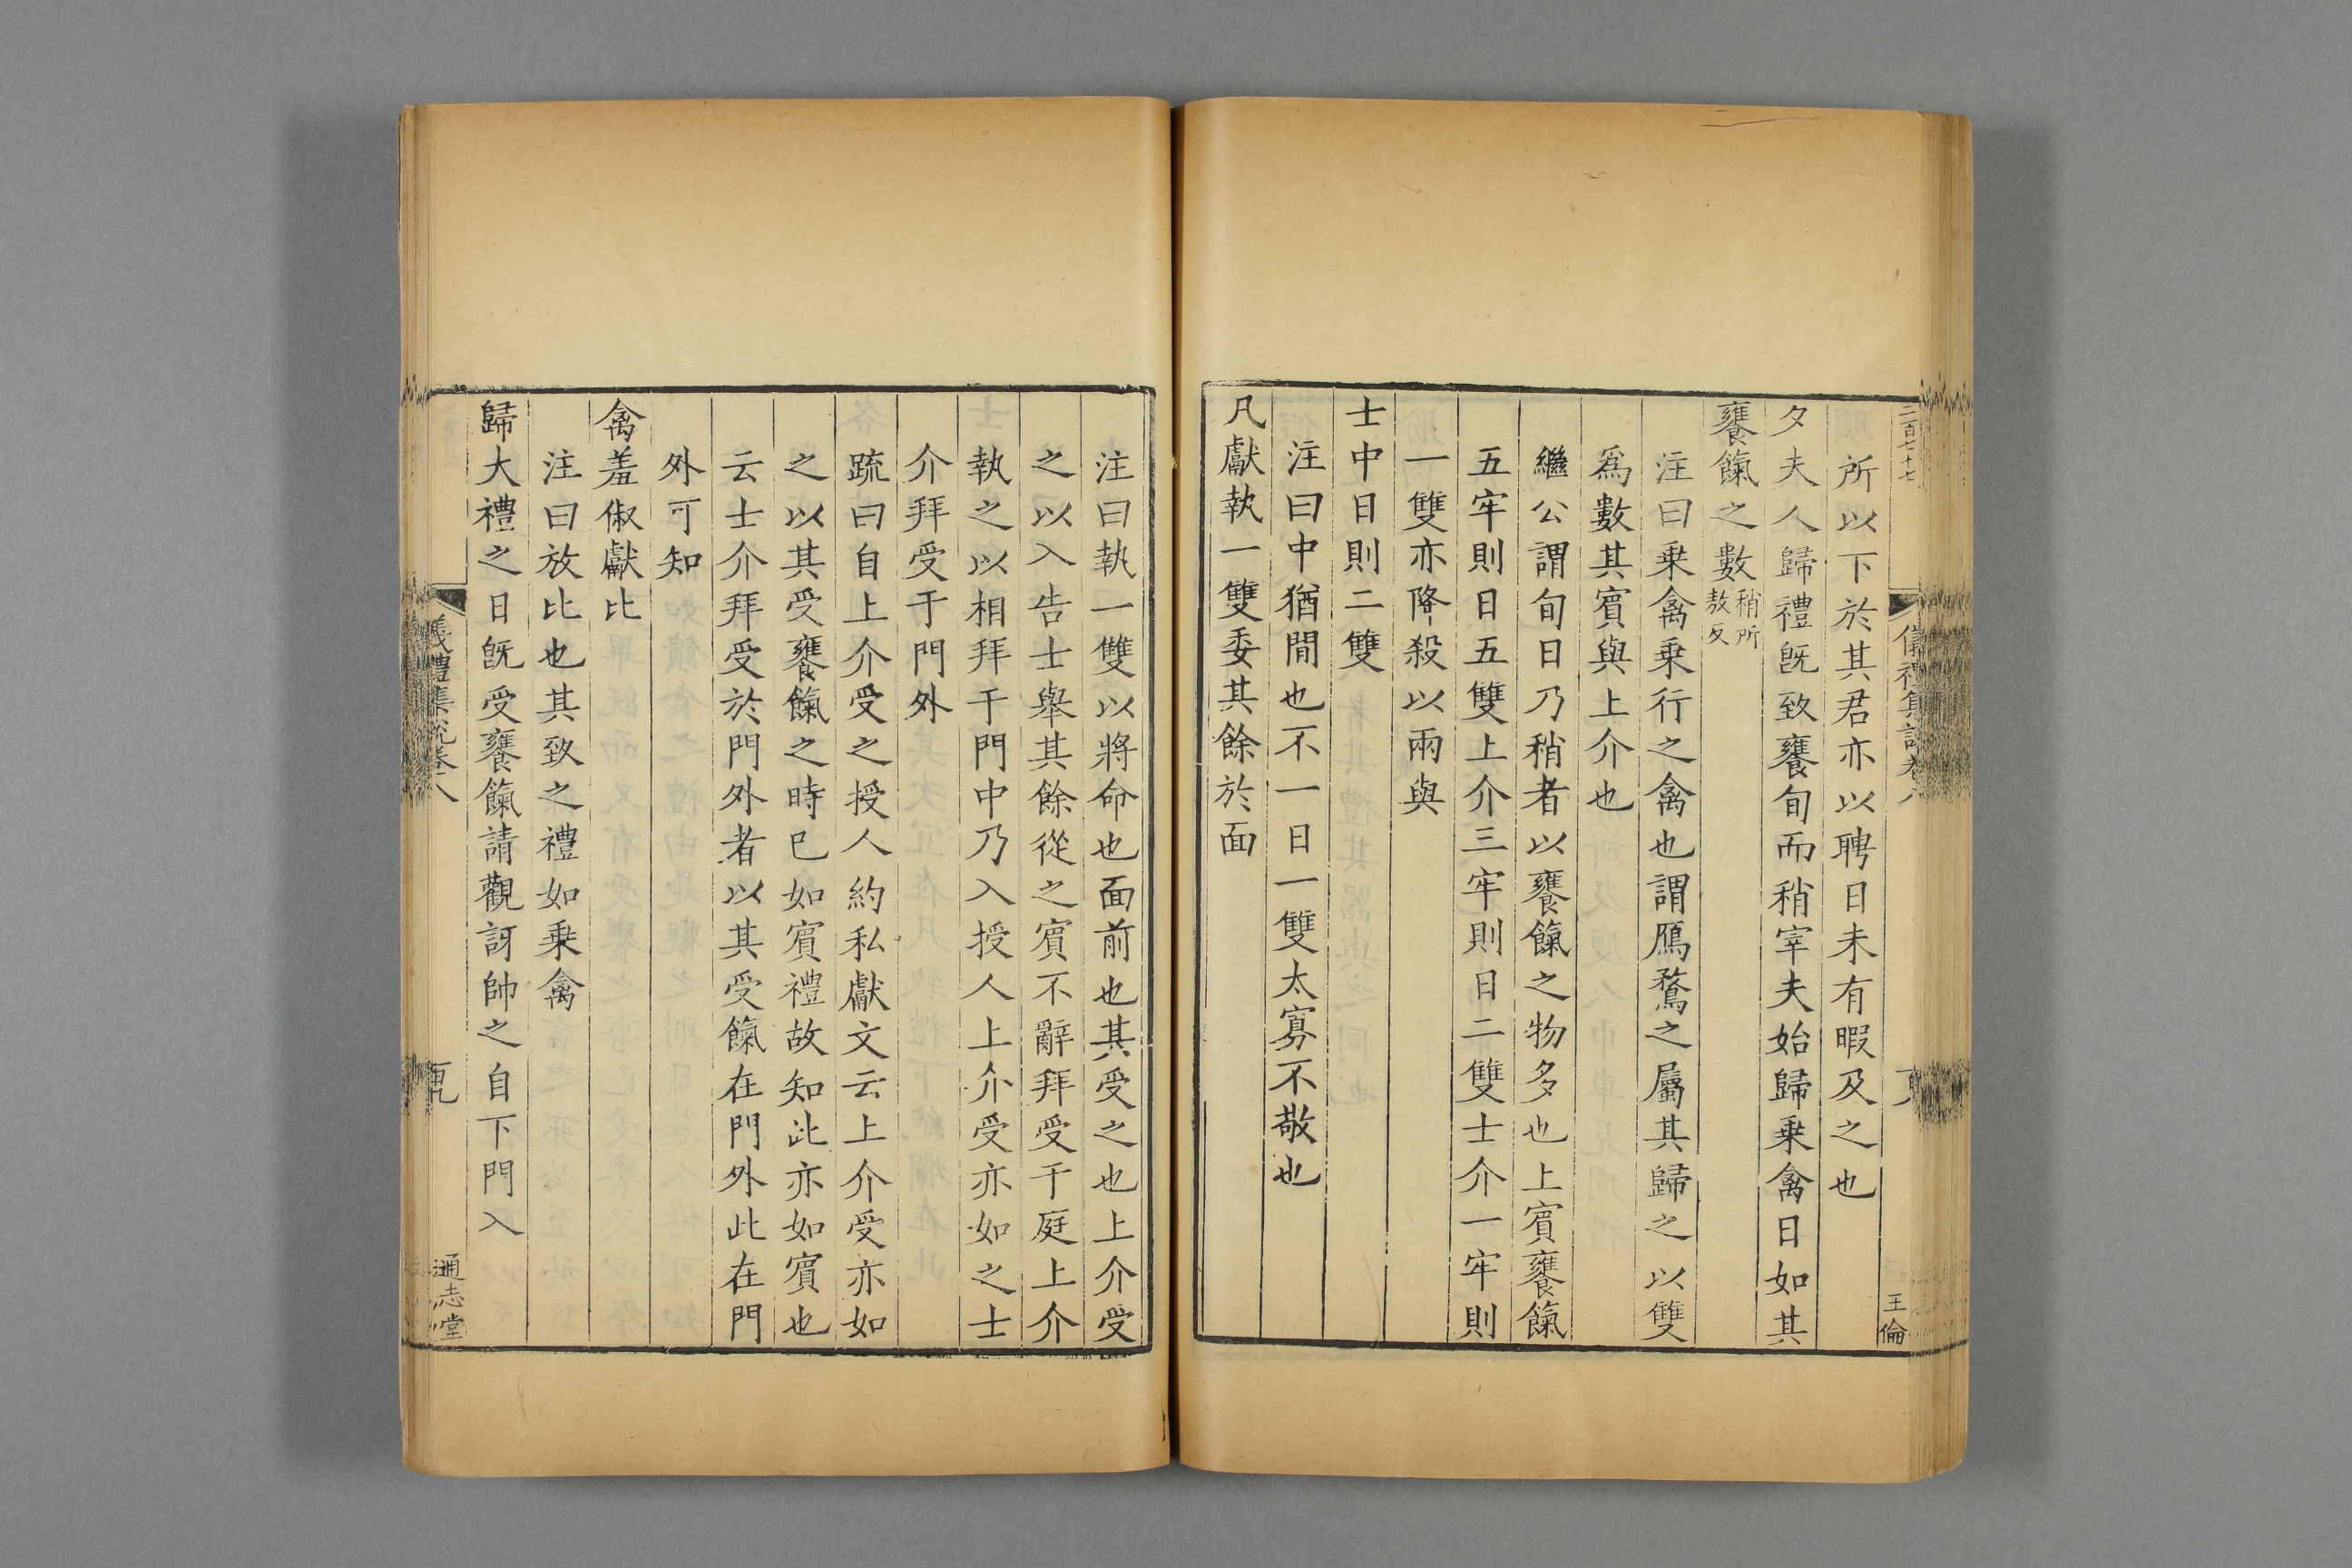 二百七十七
儀禮集說卷八
王倫
所以下於其君亦以聘日未有暇及之也
夕夫人歸禮旣致饔旬而稍宰夫始歸乗禽日如其
饔餼之數稍所敖反
注曰乗禽乗行之禽也謂鴈鶩之屬其歸之以雙
爲數其賓與上介也
繼公謂旬日乃稍者以饔餼之物多也上賓饔餼
五牢則日五雙上介三牢則日二雙士介一牢則
一雙亦降殺以兩與
士中日則二雙
注曰中猶間也不一日一雙太寡不敬也
凡獻執一雙委其餘於面
注曰執一雙以將命也面前也其受之也上介受
之以入告士舉其餘從之賓不辭拜受于庭上介
執之以相拜于門中乃入授人上介受亦如之士
介拜受于門外
疏曰自上介受之授人約私獻文云上介受亦如
之以其受饔餼之時已如賓禮故知此亦如賓也
云士介拜受於門外者以其受餼在門外此在門
外可知
禽羞俶獻比
注曰放比也其致之禮如乗禽
歸大禮之日旣受饔餼請觀訝帥之自下門入
儀禮集說卷八
通志堂